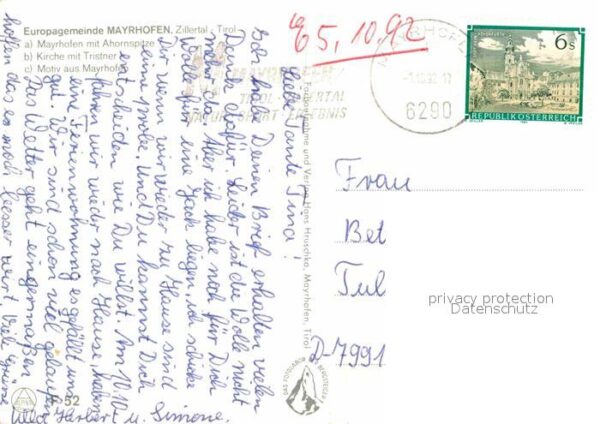 Europagemeinde MAYRHOFEN, Zillertal - Tirol
a) Mayrhofen mit Ahornspitze
b) Kirche mit Tristner
c) Motiv aus Mayrhofen
5.10.92
MAYRHOFEN
TIROL - ZILLERTAL
NATUR - SPORT - ERLEBNIS
MAYRHOFEN
6290
6s
REPUBLIK ÖSTERREICH
Liebe Tante Tina!
Hab Deinen Brief erhalten vielen
Danke dafür. Leider ist die Wolle nicht
mehr da. Aber ich habe noch für Dich
für eine Jacke liegen, ich schicke
wenn wir wieder zu Hause sind
eine Probe. Und Du kannst Dich
entscheiden wie Du willst. Am 10.10.
fahren wir wieder nach Hause, haben
eine Ferienwohnung es gefällt uns
gut. Wir sind schon viel gelaufen
Das Wetter geht einigermaßen
hoffen das es noch besser wird. Viele Grüße
Herbert u. Simone.
Verlag Hans Hruschka, Mayrhofen, Tirol
Frau
Bet
Tul
D-7991
privacy protection
Datenschutz
52